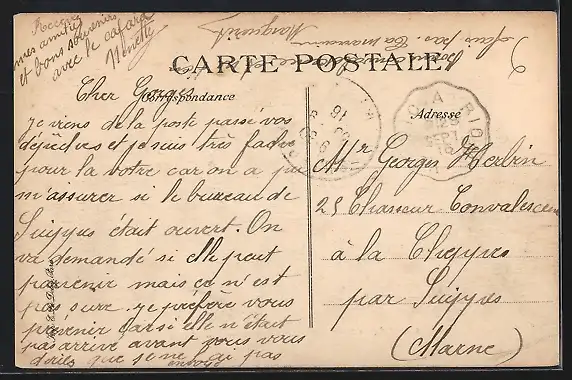 Recevez
mes amitiés
et bons souvenirs
avec le cafard
Ninette
CARTE POSTALE
Correspondance
Adresse
Cher Georges
je viens de la poste passé vos
dépêches et je suis très fachée
pour la votre car on a pu
m'assurer si le bureau de
Suippes était ouvert. On
va demandé si elle peut
parvenir mais ce n'est
pas sure. je préfère vous
prévenir car si elle n'était
pas arrivé avant pous vous
diriez que je ne ai pas
envoyé
Mr Georges Herbin
25 Chasseur Convalescen
à la Cheppes
par Suippes
(Marne)
A RIO